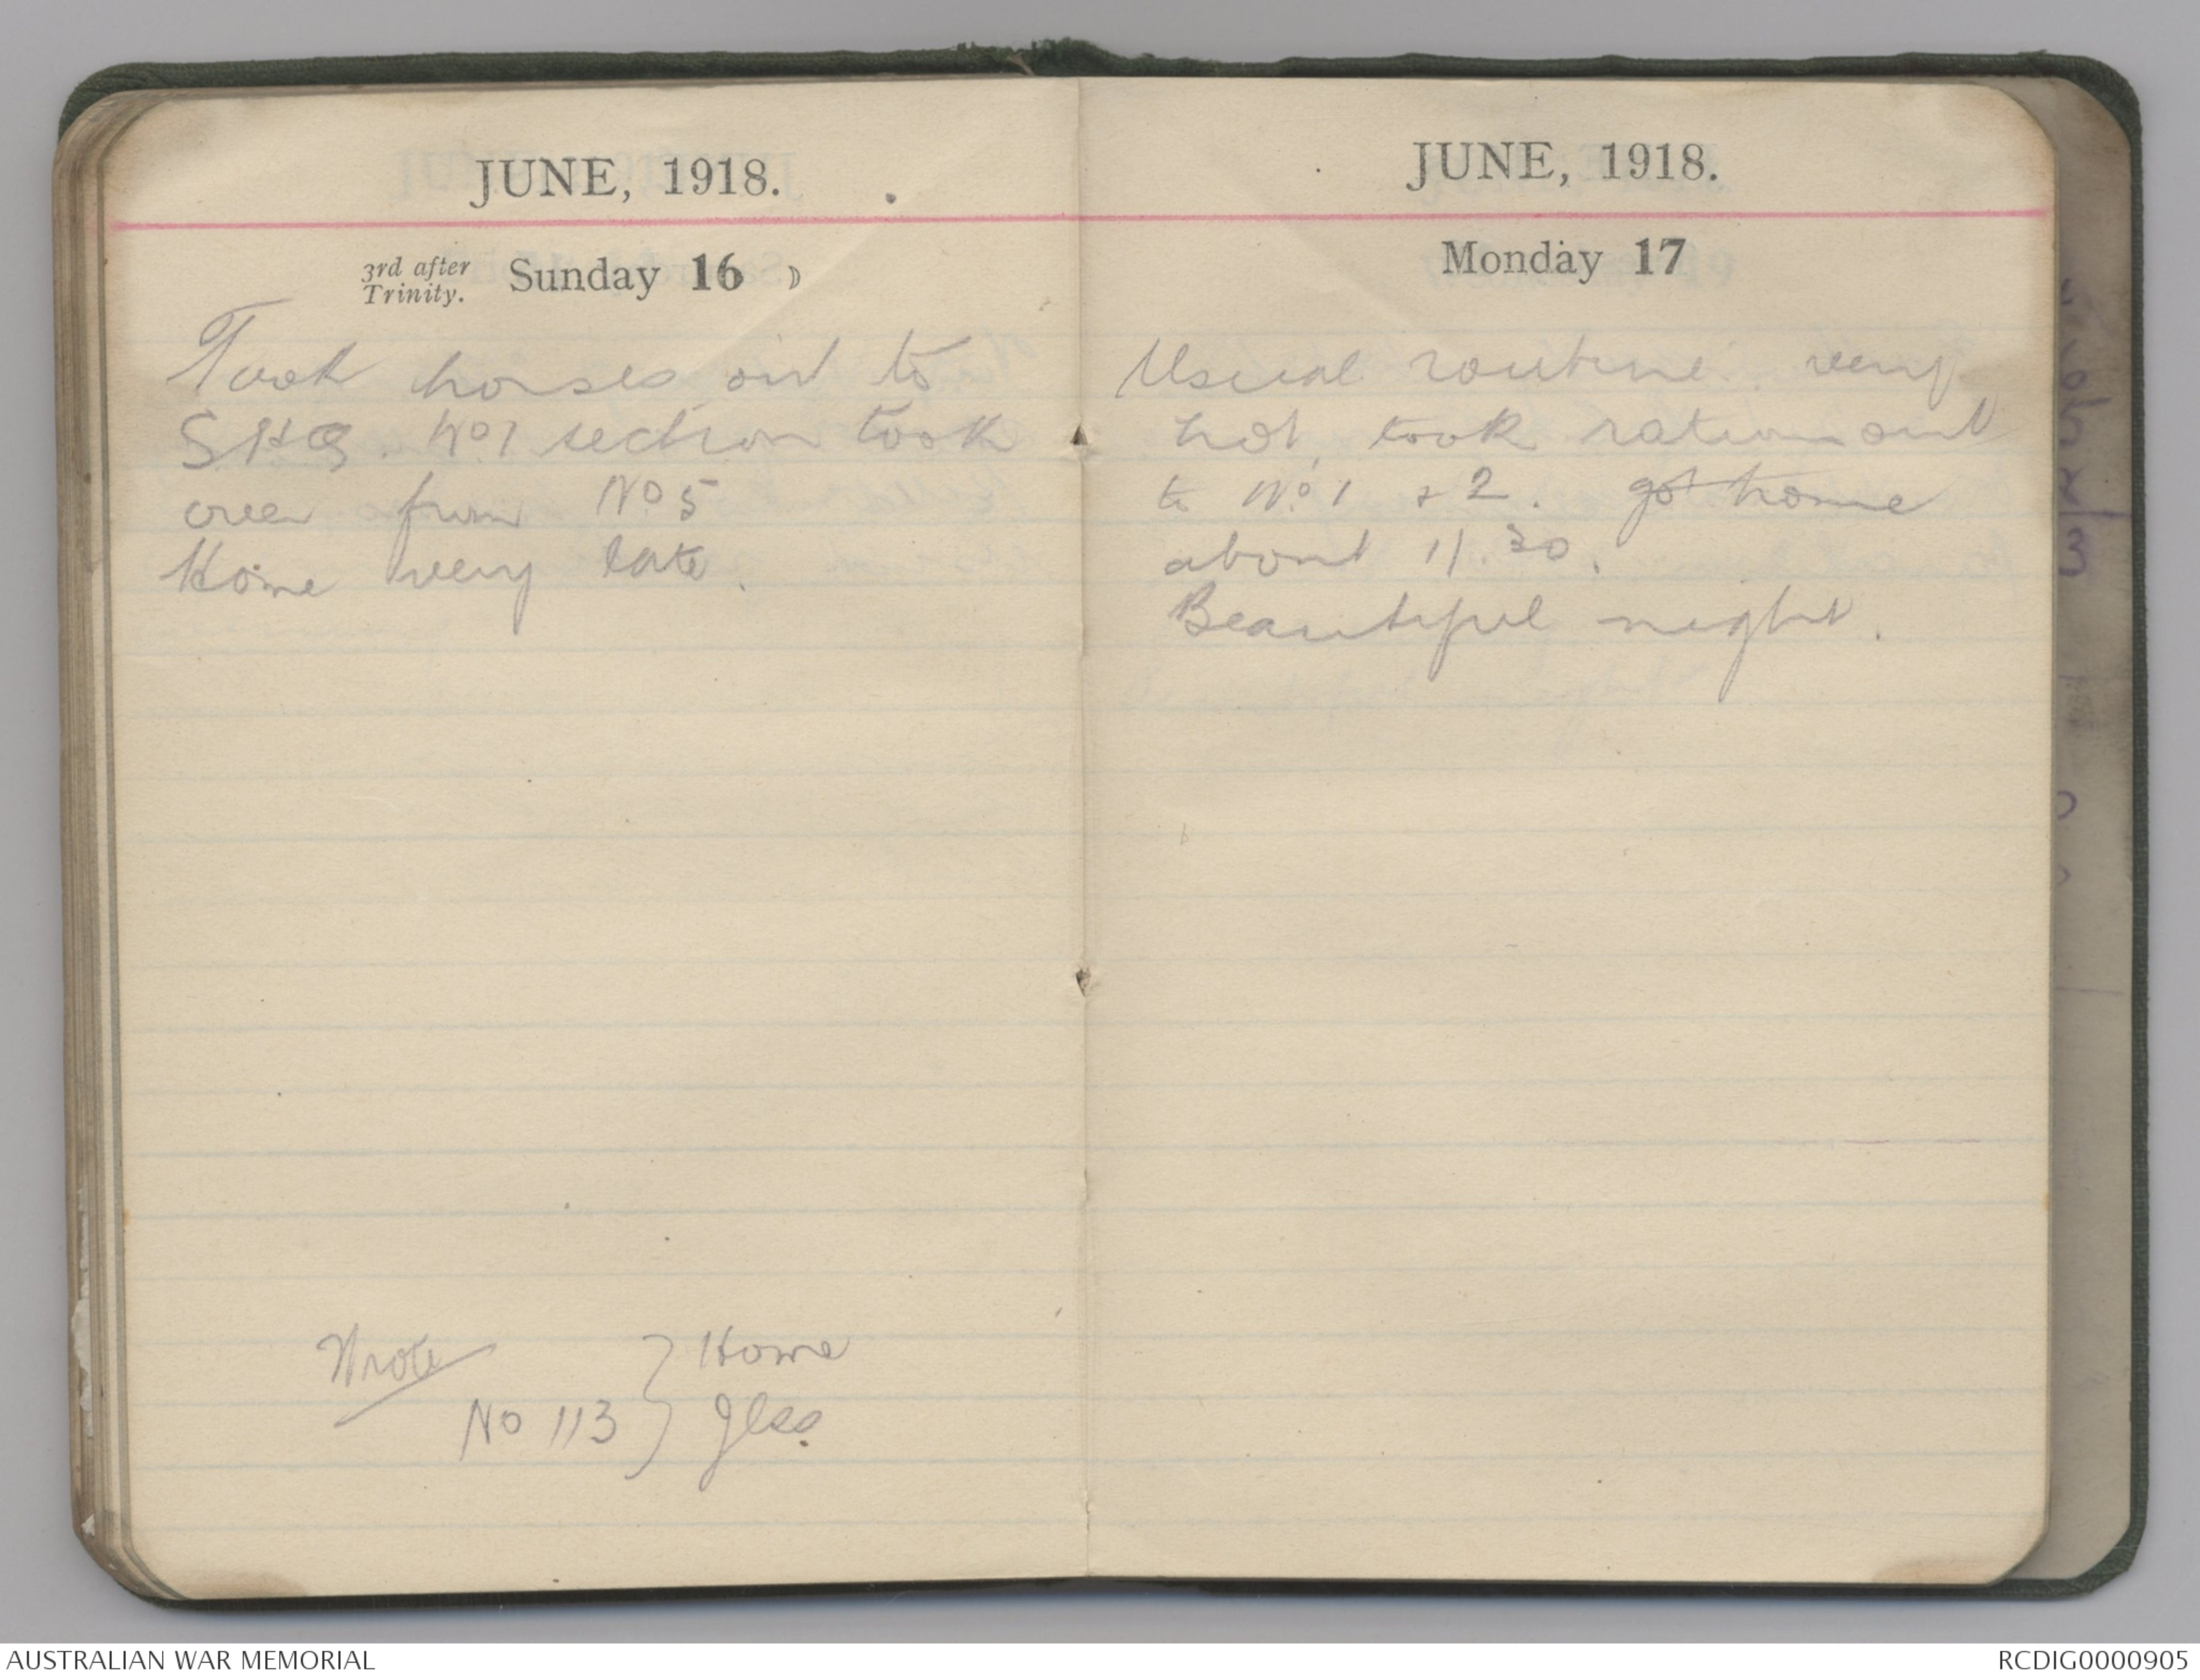 JUNE, 1918.
3rd after Trinity. Sunday 16
Took horses out to
SHQ. No 1 section took
over from No 5
Home very late.
Wrote
No 113 } Home
Jess.
JUNE, 1918.
Monday 17
Usual routine. very
hot, took rations out
to No. 1 & 2. got home
about 11.30.
Beautiful night.
AUSTRALIAN WAR MEMORIAL
RCDIG0000905